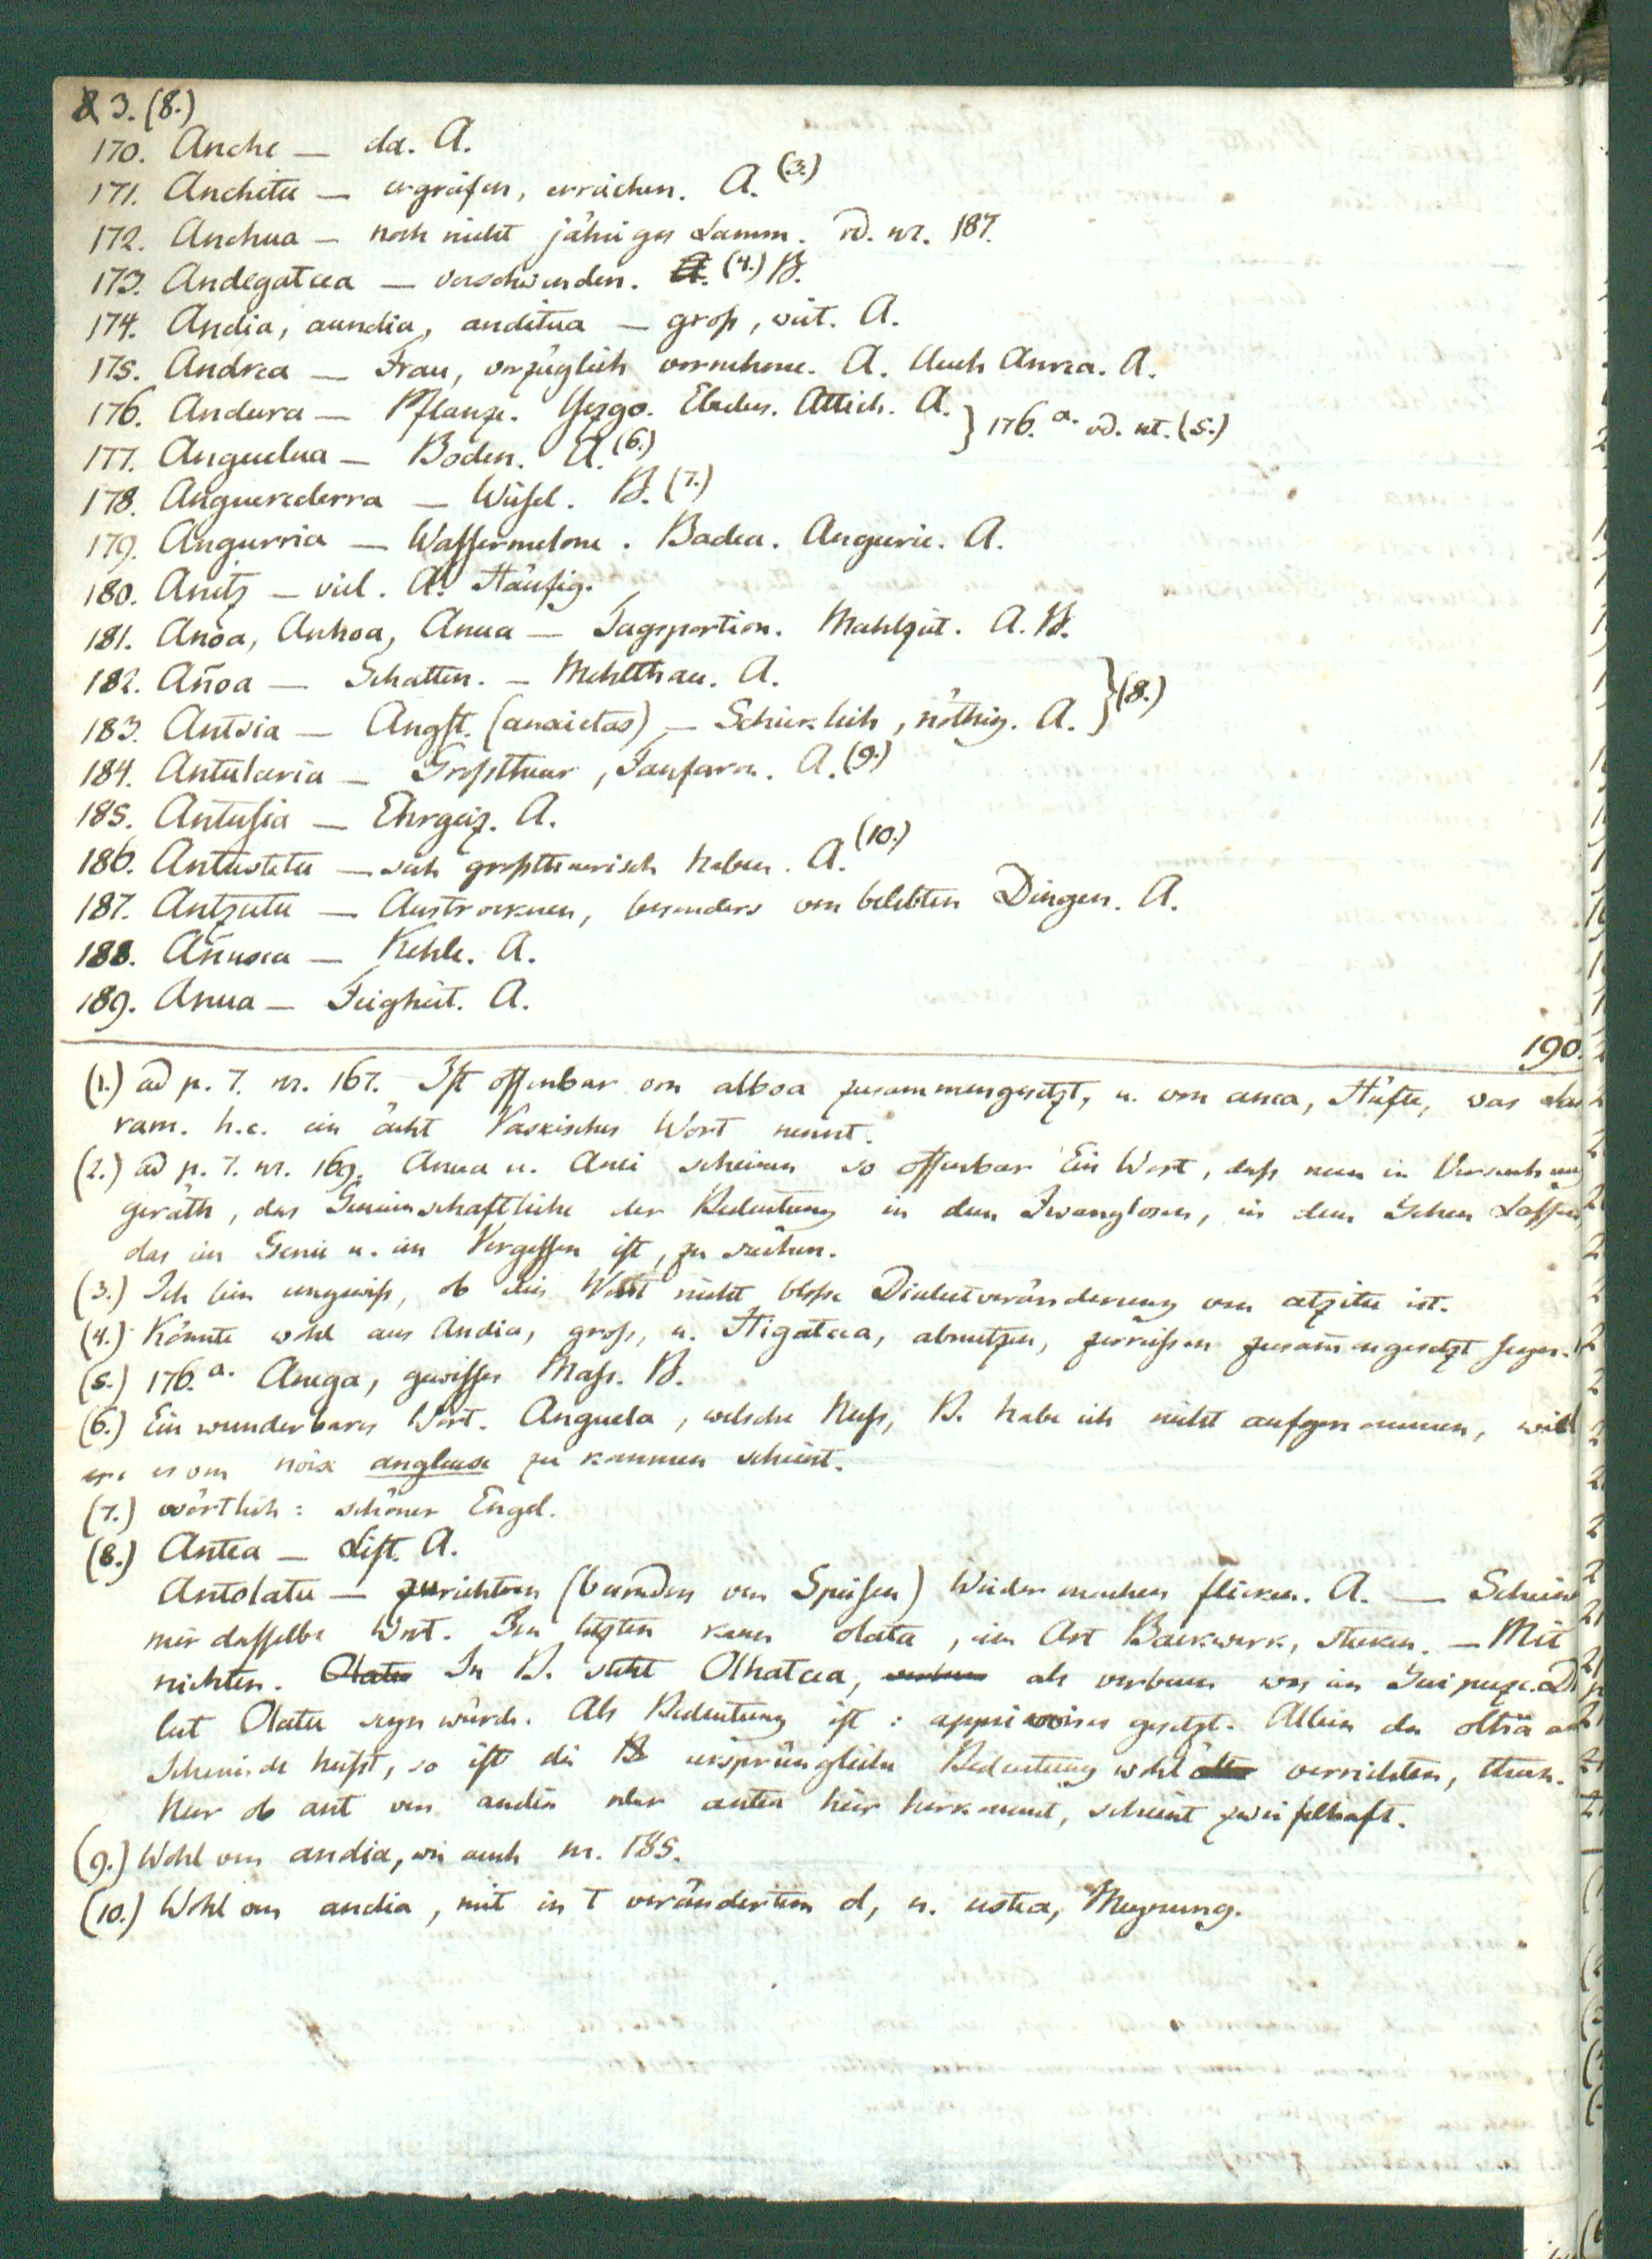 3. (8.)
170. Anche — da. A.
171. Anchitu — ergreifen, erreichen. A. (3.)
172. Anchua — noch nicht jähriges Lamm. vd. nr. 187.
173. Andegatcea — verschwinden. (4.) B.
174. Andia, aundia, anditua — groß, weit. A.
175. Andrea — Frau, vorzüglich vornehme. A. Auch Anrea. A.
176. Andura — Pflanze. Yezgo. Ebulus. Attich. A. } 176.a. vd. nt. (5.)
177. Anguelua — Boden. A. (6.)
178. Anguerederra — Wiesel. B. (7.)
179. Angurria — Wassermelone. Badea. Angurie. A.
180. Anitz — viel. A. Häufig.
181. Anoa, Anhoa, Anua — Tagsportion. Mahlzeit. A. B.
182. Añoa — Schatten. — Mehlthau. A.
183. Antsia — Angst. (anxietas) — Schicklich, nöthig. A. } (8.)
184. Antularia — Großthuer, Fanfaron. A. (9.)
185. Antusia — Ehrgeiz. A.
186. Antustetu — sich großthuerisch haben. A. (10.)
187. Antzutu — Austrocknen, besonders von belebten Dingen. A.
188. — Kehle. A.
189. Anua — Feigheit. A.
190.
(1.) ad p. 7. nr. 167. Ist offenbar von alboa zusammengesetzt, u. von anca, Hüfte, was Lar
ram. h.e. ein ächt Vaskisches Wort nennt.
(2.) ad p. 7. nr. 169. u. scheinen so offenbar Ein Wort, daß man in Versuchung
geräth, das Gemeinschaftliche der Bedeutung in dem Zwanglosen, in dem Gehen Lassen,
das im Genie u. im Vergessen ist, zu suchen.
(3.) Ich bin ungewiß, ob dies Wort nicht bloße Dialectveränderung von atzitu ist.
(4.) Könnte wohl aus Andia, groß, u. Higatcea, abnutzen, zerreißen zusammengesetzt seyn.
(5.) 176.a. Anega, gewisses Maß. B.
(6.) Ein wunderbares Wort. Anguela, welsche Nuß, B. habe ich nicht aufgenommen, weil
es von noix angleuse zu kommen scheint.
(7.) wörtlich: schöner Engel.
(8.) Antea — List. A.
Antolatu — zurichten (besonders von Speisen) Wieder machen flicken. A. — Scheint
mir dasselbe Wort. Im letzten kann olata, ein Art Backwerk, stecken. — Mit
nichten. Olatu In B. steht Olhatcea, als verbum was im Guipuzc. Dia
lect Olatu seyn würde. Als Bedeutung ist: gesetzt. Allein da
Schmiede heißt, so ist die ursprüngliche Bedeutung wohl verrichten, thun.
Nur ob ant von andia oder antea hier herkommt, scheint zweifelhaft.
(9.) Wohl von andia, wie auch nr. 185.
(10.) Wohl von andia, mit in t verändertem d, u. ustea, Meynung.